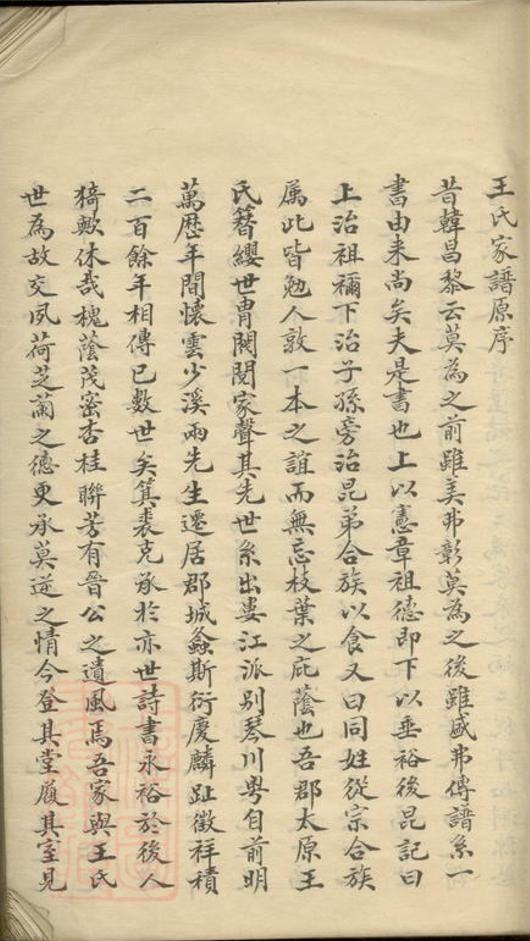 王氏家譜原序
昔韓昌黎云莫為之前雖美弗彰莫為之後雖盛弗傳譜系一
書由来尚矣夫是書也上以憲章祖德即下以垂裕後昆記曰
上治祖禰下治子孫旁治昆弟合族以食又曰同姓從宗合族
属此皆勉人敦一本之誼而無忘枝葉之庇蔭也吾郡太原王
氏簪纓世胄閥閱家聲其先世系出婁江派别琴川粤自前明
萬歷年間懷雲少溪兩先生遷居郡城螽斯衍慶麟趾徵祥積
二百餘年相傳已數世矣箕裘克承於亦世詩書永裕於後人
猗歟休哉槐蔭茂密杏桂聯芳有晉公之遺風焉吾家與王氏
世為故交夙荷芝蘭之德更承莫逆之情今登其堂履其室見